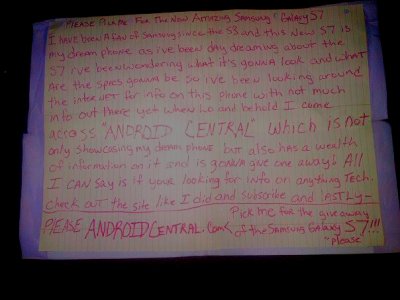 PLEASE PICK ME FOR THE NEW AMAZING SAMSUNG GALAXY S7
I HAVE BEEN A FAN OF SAMSUNG SINCE THE S3 and this NEW S7 is
my dream phone as ive been day dreaming about the
S7 ive been wondering what it's gonna look and what
Are the specs gonna be so ive been looking around
the internet for info on this phone with not much
info out there yet when Lo and behold I come
across "ANDROID CENTRAL" which is not
only showcasing my dream phone but also has a wealth
of information on it and is gonna give one away! All
I CAN say is if your looking for info on anything Tech.
check out the site like I did and subscribe and lastly-
Pick me for the giveaway
PLEASE ANDROIDCENTRAL.Com of the Samsung Galaxy S7!!!
"please